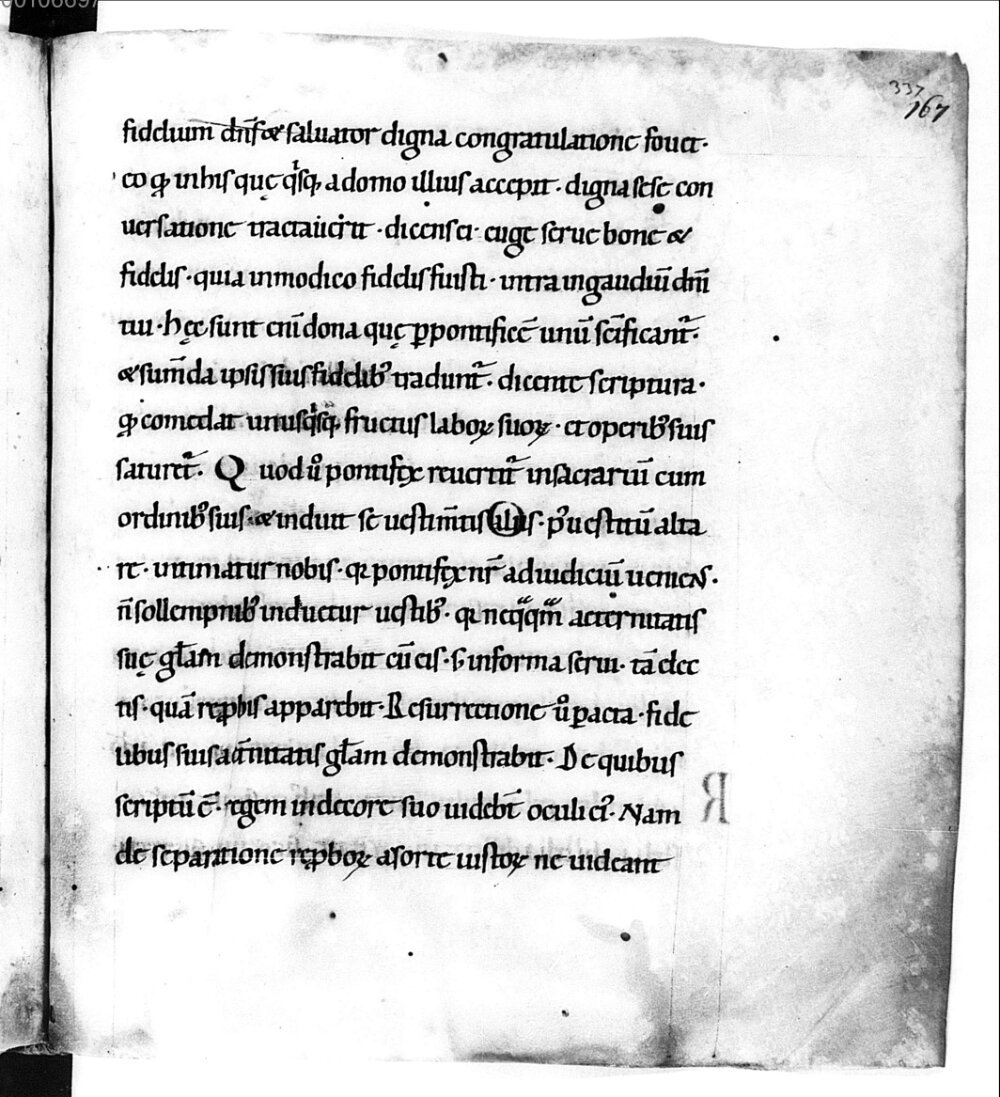 00106697
337
167
fidelium dn̄s & saluator digna congratulatione fouet·
eo qđ in his quę q̇sq; a domo illius accepit · digna sese con
uersatione tractauer̄it · dicens ei· euge serue bone &
fidelis · quia in modico fidelis fuisti · intra in gaudiū dn̄i
tui · hęc sunt enī dona quę p̱ pontificē unū sc̄ificant᷑·
& sum̄da ipsis suis fidelib; tradunt᷑· dicente scriptura·
qđ comedat unusq̇sq; fructus laboꝝ suoꝝ · et operib; suis
saturet᷑· Quod ů pontifex reuertit᷑ in sacrariū cum
ordinib; suis · & induit se uestim̄tis illis · p᷒ uestitū alta
re · intimatur nobis · qꝛ pontifex nr̄ ad iudiciū ueniens·
n̄ sollempnib; induetur uestib; · qꝛ neq̈q̈m̄ aeternitatis
suę gl̄am demonstrabit cū eis · s; in forma serui · tā elec
tis · quā rep̱bis apparebit · Resurrectione ů p̱acta · fide
libus suis aet̄nitatis gl̄am demonstrabit · De quibus
scriptū ē · regem in decore suo uidebt̄ oculi ei᷒· Nam
de separatione rep̱boꝝ a sorte iustoꝝ ne uideant